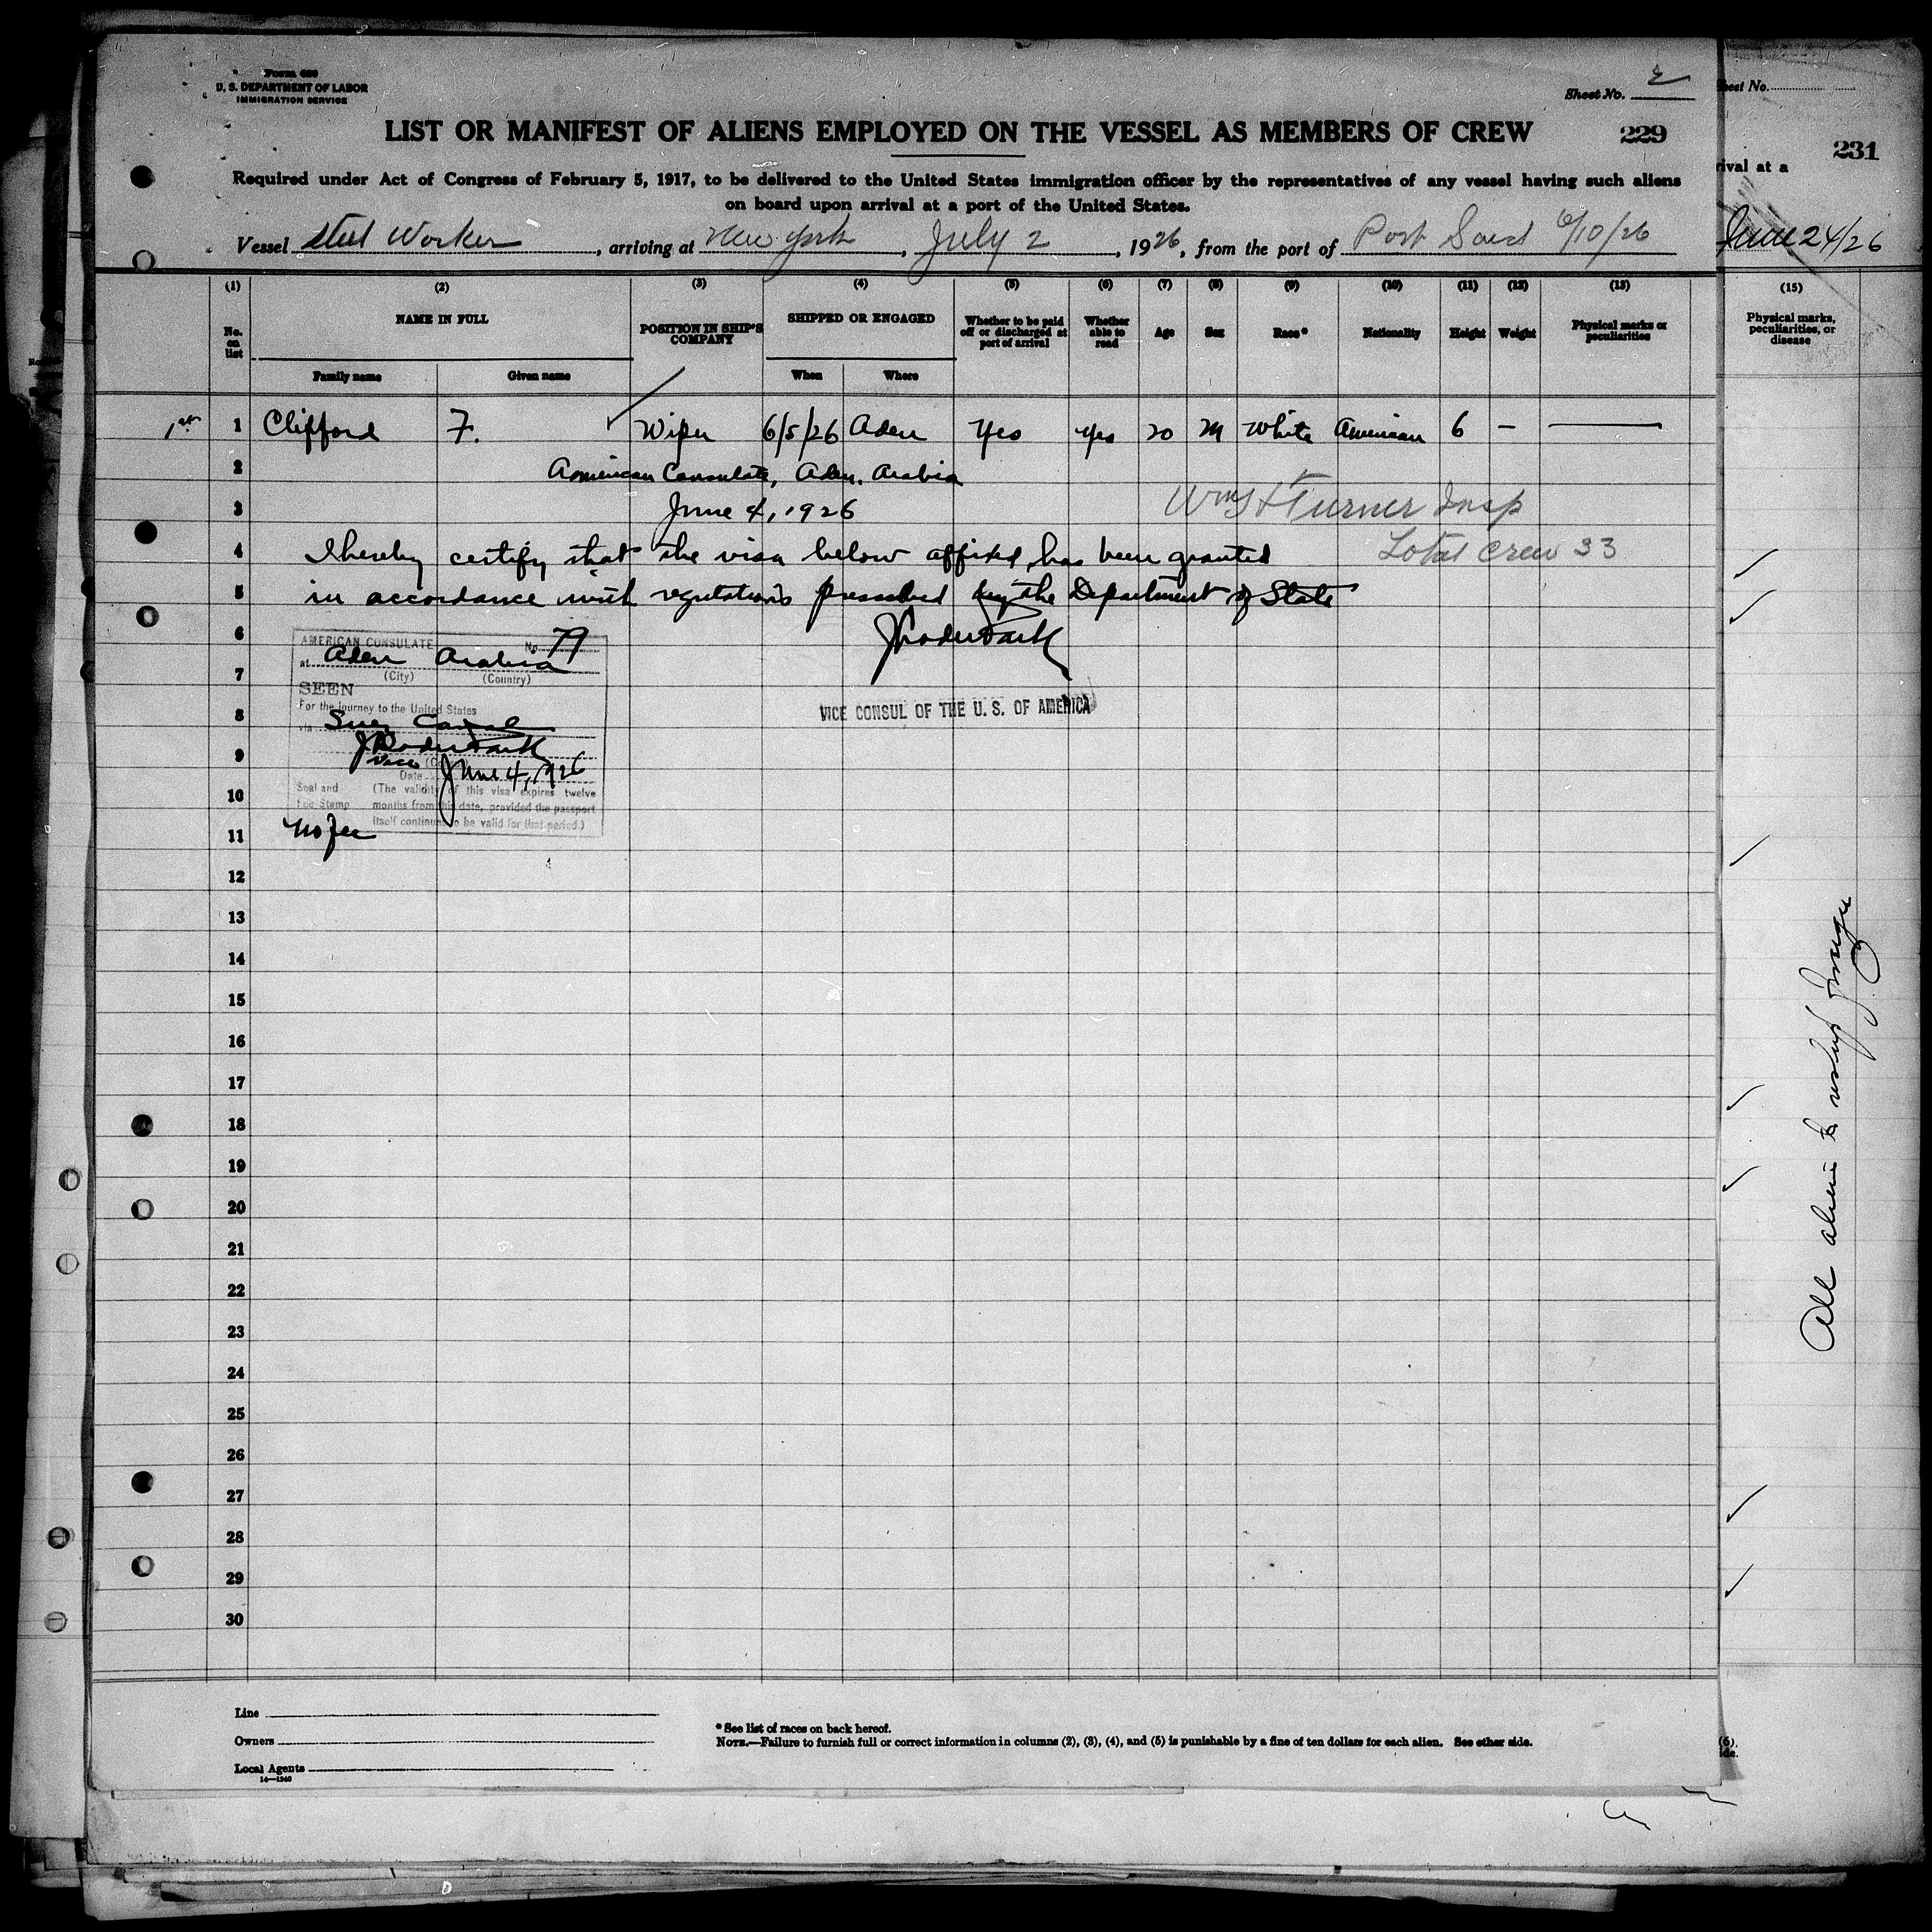 Form 680
U. S. DEPARTMENT OF LABOR
IMMIGRATION SERVICE
Sheet No. 2
LIST OR MANIFEST OF ALIENS EMPLOYED ON THE VESSEL AS MEMBERS OF CREW
229
Required under Act of Congress of February 5, 1917, to be delivered to the United States immigration officer by the representatives of any vessel having such aliens
on board upon arrival at a port of the United States.
Vessel Steel Worker, arriving at New York, July 2, 1926, from the port of Port Said 6/10/26
(1) (2) (3) (4) (5) (6) (7) (8) (9) (10) (11) (12) (13)
No. on list
NAME IN FULL
Family name
Given name
POSITION IN SHIP'S COMPANY
SHIPPED OR ENGAGED
When
Where
Whether to be paid off or discharged at port of arrival
Whether able to read
Age
Sex
Race*
Nationality
Height
Weight
Physical marks or peculiarities
1st 1 Clifford F. Wiper 6/5/26 Aden Yes Yes 20 M White American 6 —
2 American Consulate, Aden, Arabia
3 June 4, 1926
Turner Insp
4 I hereby certify that the visa below affixed has been granted
Total crew 33
5 in accordance with regulations prescribed by the Department of State
6
7
8
9
10
11
AMERICAN CONSULATE No. 79
at Aden Arabia
(City) (Country)
SEEN
For the journey to the United States
via Suez Canal
Vice
Date June 4, 1926
Seal and Fee Stamp
(The validity of this visa expires twelve
months from this date, provided the passport
itself continues to be valid for that period.)
No fee
VICE CONSUL OF THE U. S. OF AMERICA
12
13
14
15
16
17
18
19
20
21
22
23
24
25
26
27
28
29
30
Line
Owners
Local Agents
14—1240
* See list of races on back hereof.
NOTE.—Failure to furnish full or correct information in columns (2), (3), (4), and (5) is punishable by a fine of ten dollars for each alien. See other side.
heet No.
231
rival at a
June 24/26
(15)
Physical marks, peculiarities, or disease
All alien
(6).
ide.